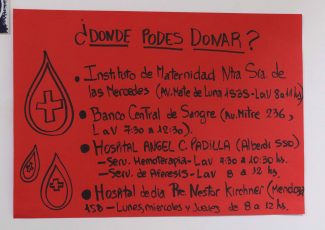 ¿DONDE PODES DONAR?
• Instituto de Maternidad Ntra Sra. de
las Mercedes (Av. Mate de Luna 1535 - LaV 8 a 11 hs)
• Banco Central de Sangre (Av. Mitre 236,
LaV 7:30 a 12:30).
• HOSPITAL ANGEL C. PADILLA (Alberdi 550)
- Serv. Hemoterapia - LaV 7:30 a 10:30 hs.
- Serv. de Aféresis - LaV 8 a 12 hs.
• Hospital de dia Pte. Nestor Kirchner (Mendoza
158 - Lunes, miercoles y Jueves de 8 a 12 hs.